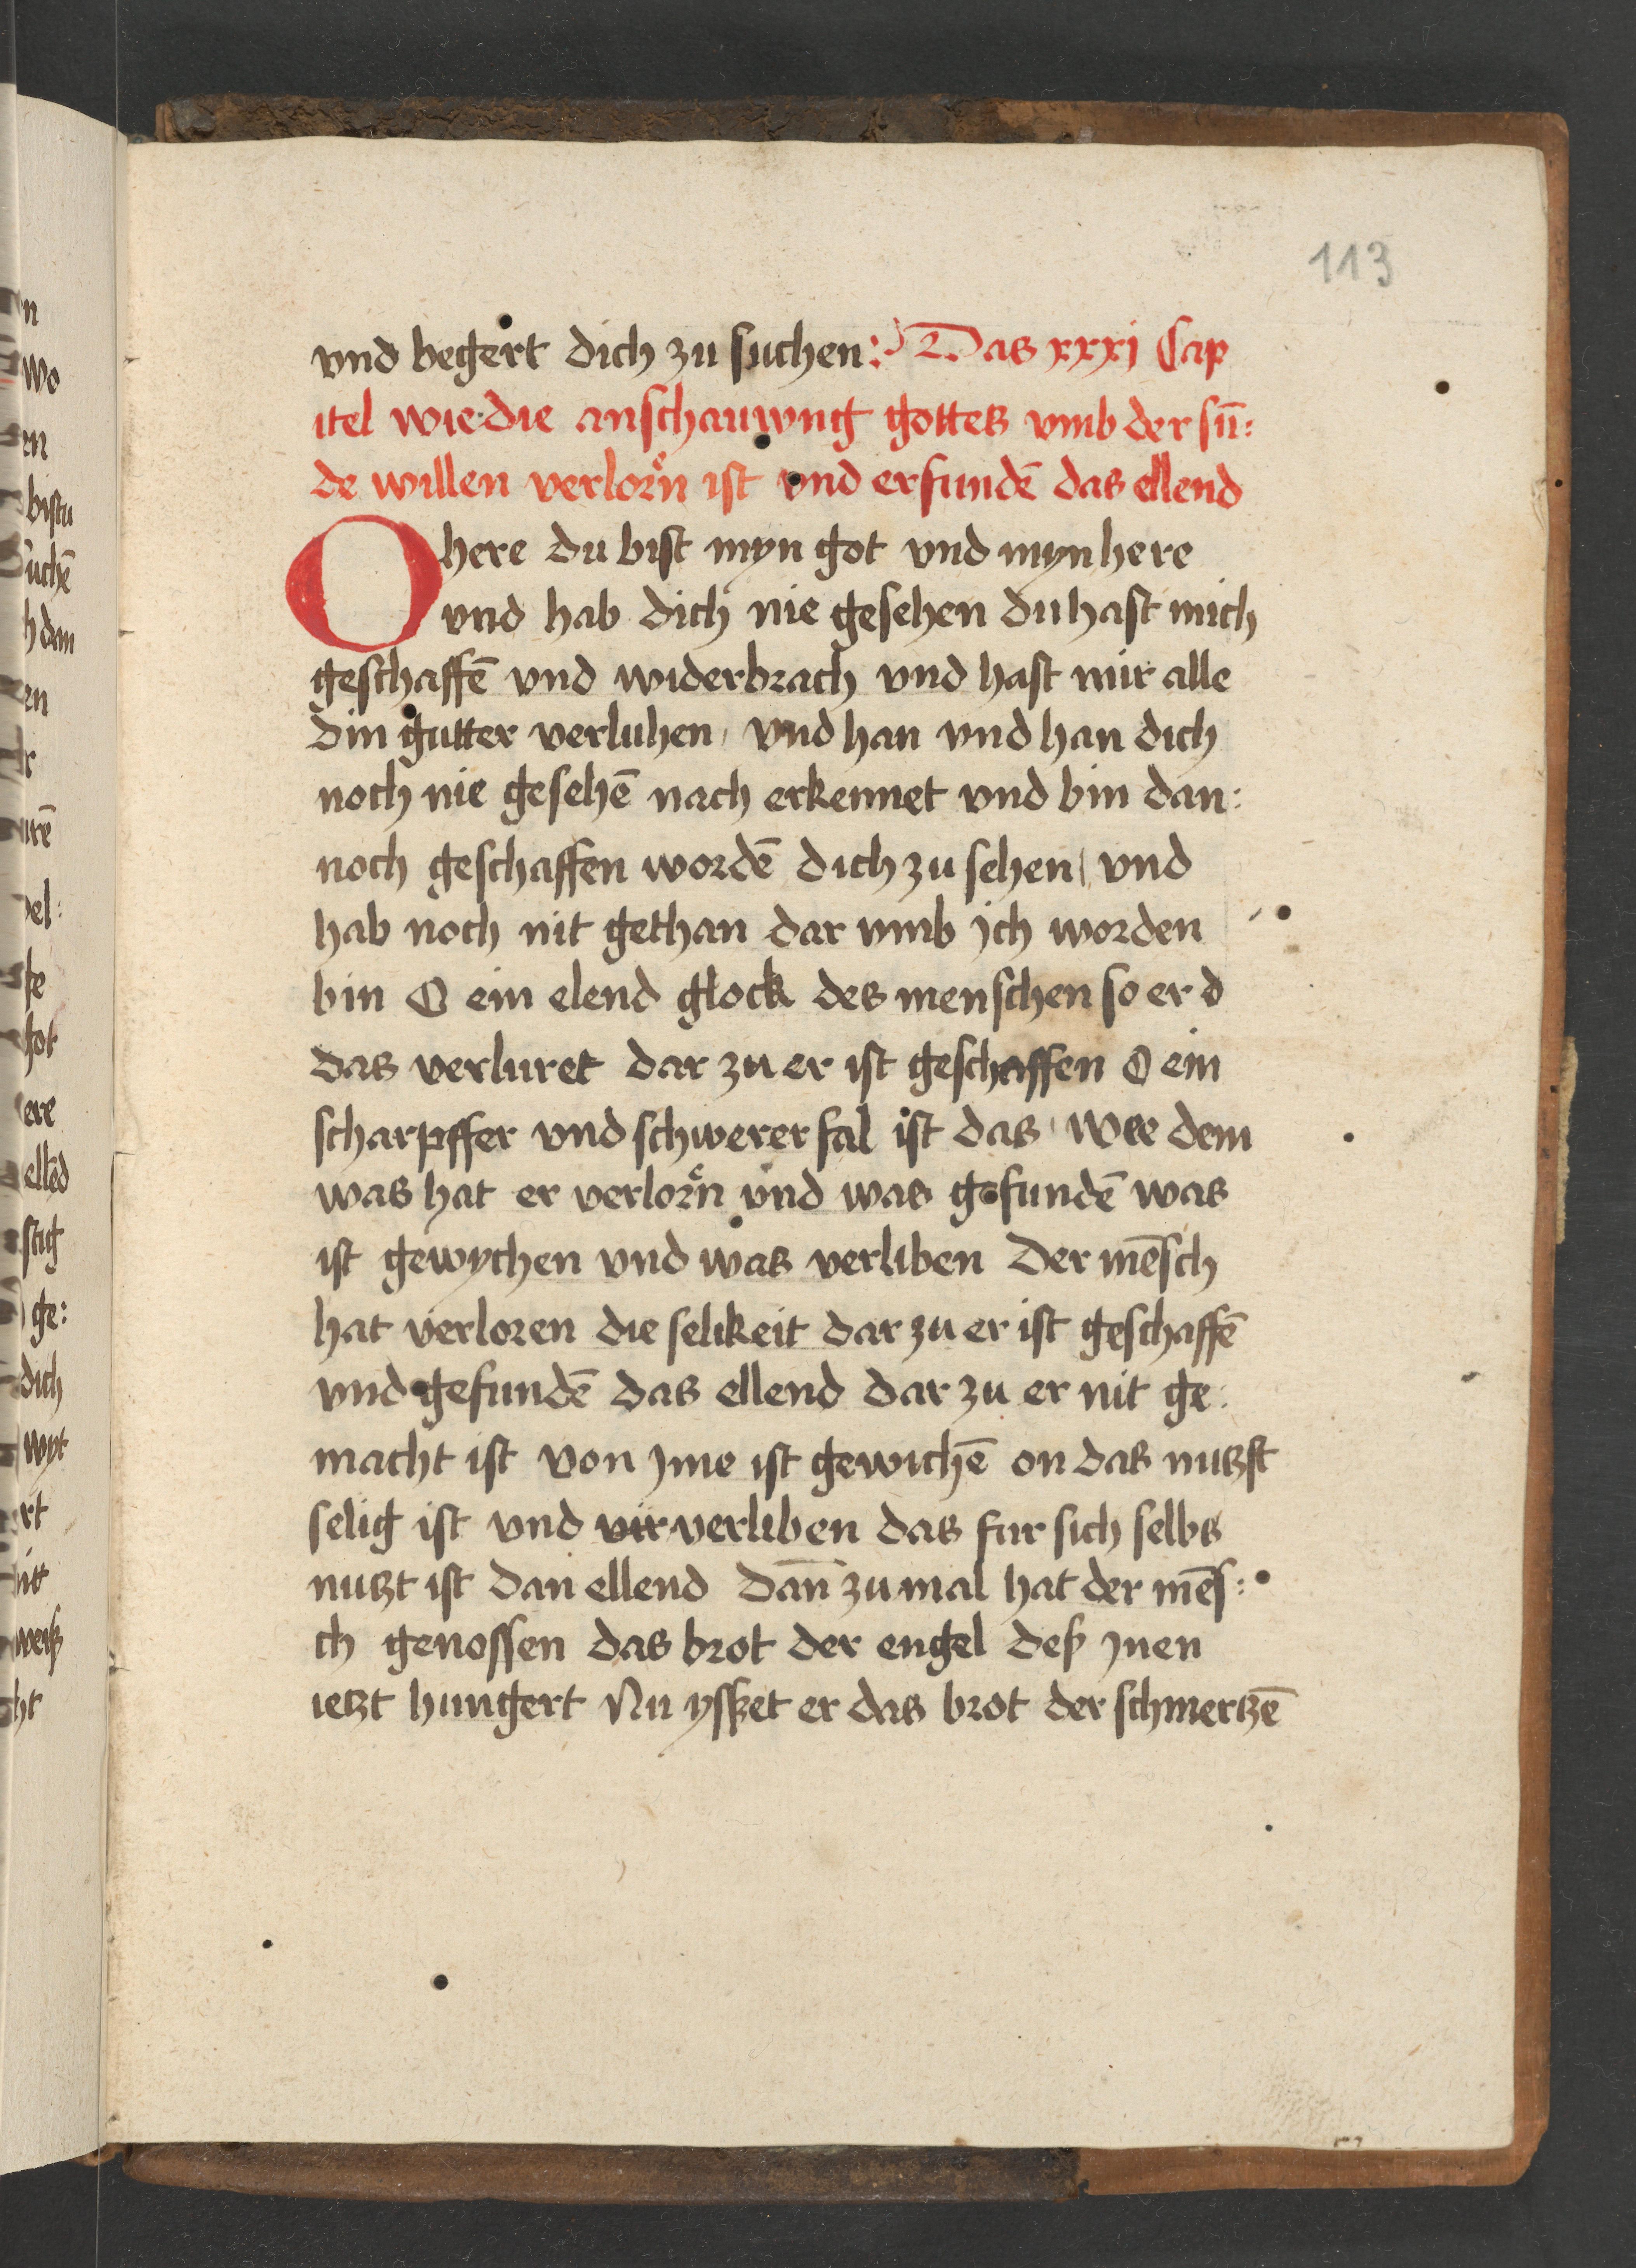 113
vnd begert dich zu suchen : Das xxxj Cap
itel wie die anschauwng gottes vmb der sū:
de willen verlorn̄ ist vnd erfundē das ellend
O here du bist myn got vnd myn here
vnd hab dich nie gesehen du hast mich
geschaffē vnd widerbrach vnd hast mir alle
din gutter verluhen, vnd han vnd han dich
noch nie gesehē nach erkennet vnd bin dan:
noch geschaffen wordē dich zu sehen, vnd
hab noch nit gethan dar vmb jch worden
bin O ein elend glock des menschen so er d
das verluret dar zu er ist geschaffen O ein
scharpffer vnd schwerer fal ist das, wee dem
was hat er verlorn̄ vnd was gefundē was
ist gewychen vnd was verliben Der mēsch
hat verloren die selikeit dar zu er ist geschaffē
vnd gefundē das ellend dar zu er nit ge:
macht ist von jme ist gewichē on das nutzst
selig ist vnd vir verliben das fur sich selbs
nutzt ist dan ellend Dan̄ zu mal hat der mēs:
ch genossen das brot der engel deß jnen
ietzt hungert Nu ysset er das brot der schmertzē